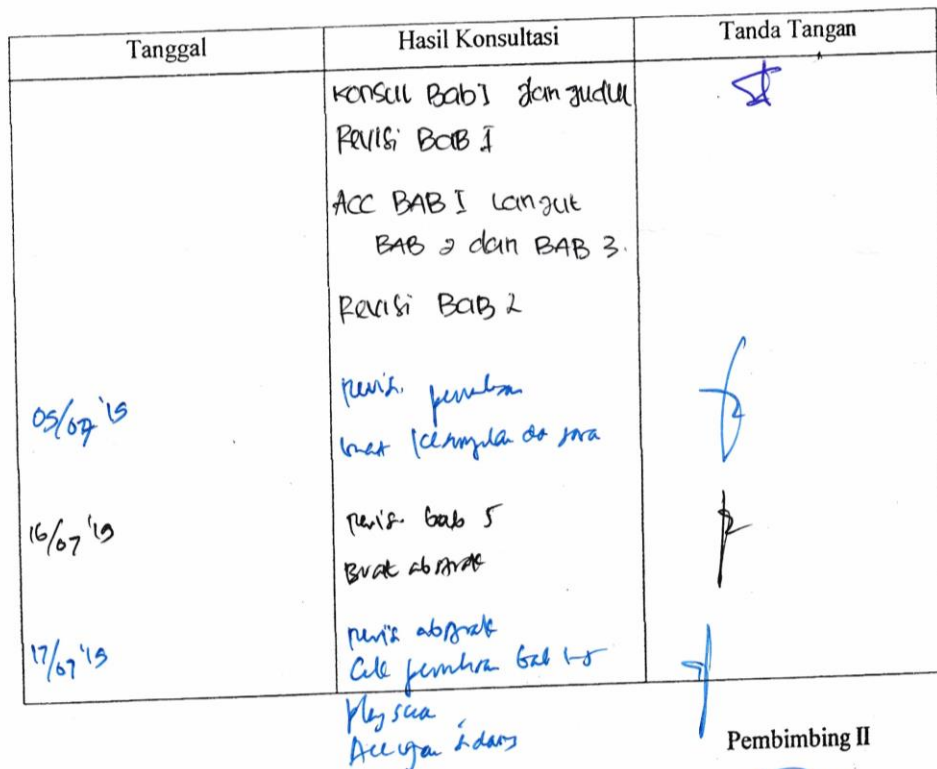 Tanggal Hasil Konsultasi Tanda Tangan
Konsul Bab I dan Judul
Revisi BAB I
ACC BAB I Lanjut
BAB 2 dan BAB 3.
Revisi BAB 2
05/07 '19 revisi
buat kesimpulan
16/07 '19 revisi bab 5
Buat abstrak
17/07 '19 revisi abstrak
Cek bab 1-5
Acc
Pembimbing II